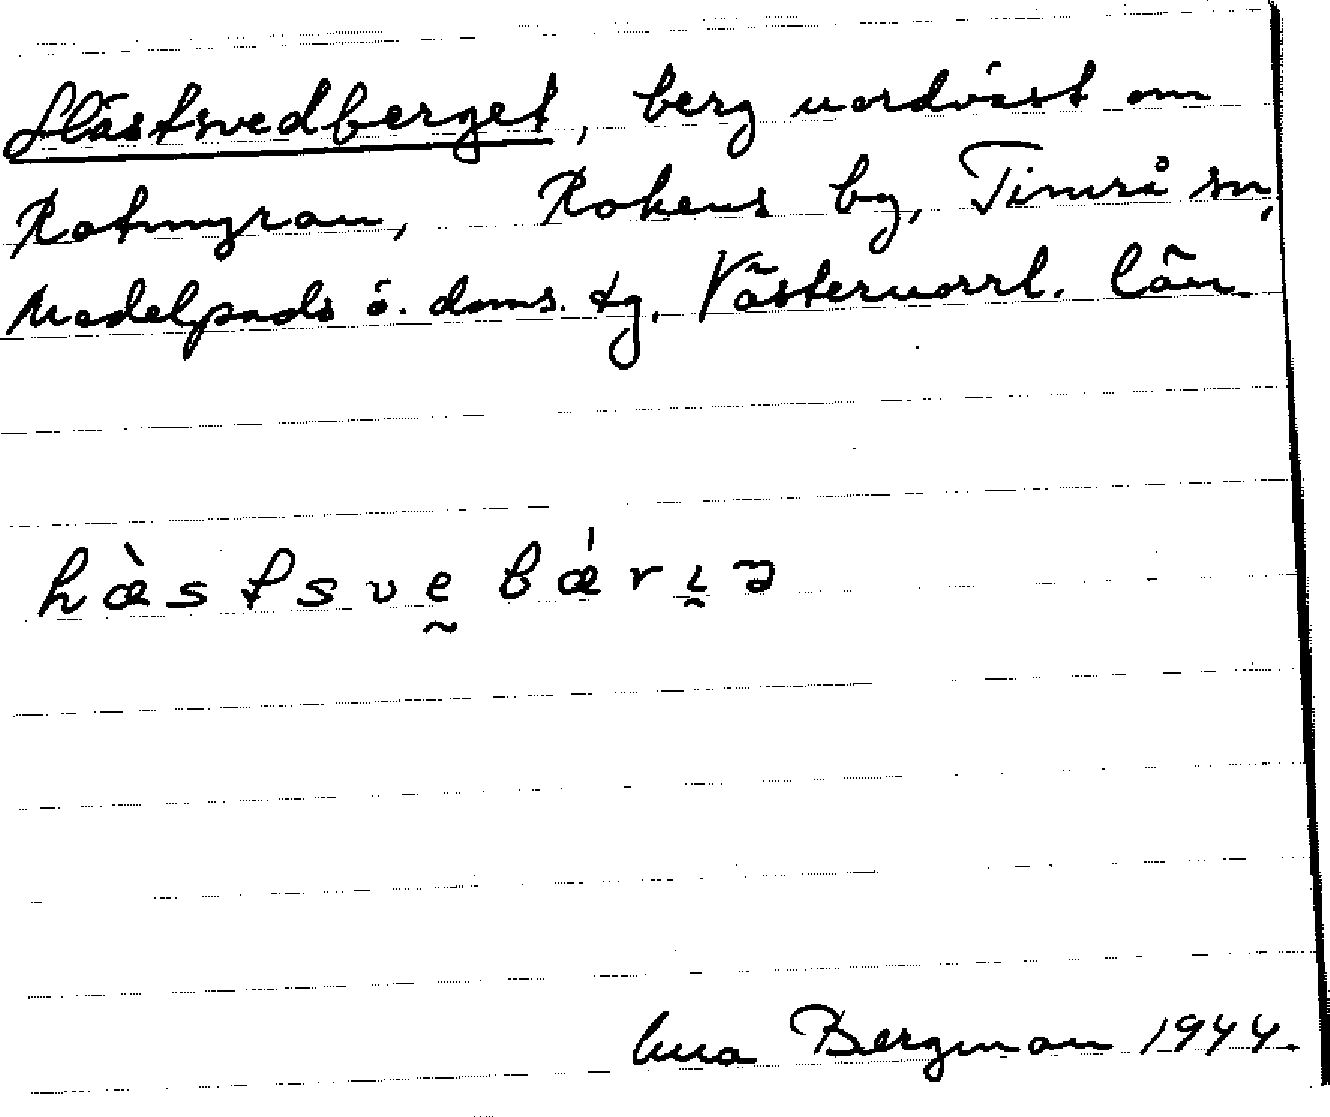 Hästsvedberget, berg nordväst om
Rotmyran, Rokens by, Timrå sn,
Medelpads ö. doms. tg, Västernorrl. län.
hæ̀stsve̮bǽrı̮ə
Bergman 1944.